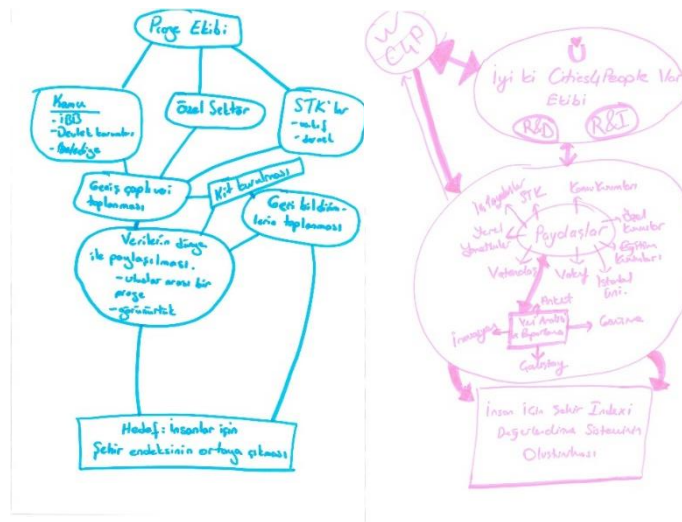 Proje Ekibi
Kamu
- İBB
- Devlet kurumları
- Belediye
Özel Sektör
STK'lar
- vakıf
- dernek
Geniş çaplı veri
toplanması
Kit kurulması
Geri bildirim-
lerin toplanması
Verilerin dünya
ile paylaşılması.
- uluslar arası bir
proje
- görünürlük
Hedef: İnsanlar için
Şehir endeksinin ortaya çıkması
W
C4P
İyi ki Cities4People Var
Ekibi
R&D
R&I
STK
Kamu Kurumları
Yerel
Yönetimler
Paydaşlar
Özel
Kurumlar
Eğitim
Kurumları
Vatandaş
Vakıf
İstanbul
Üni.
Anket
Veri Analizi
ve Raporlama
İnovasyon
Çalıştay
İnsan İçin Şehir İndexi
Değerlendirme Sisteminin
Oluşturulması